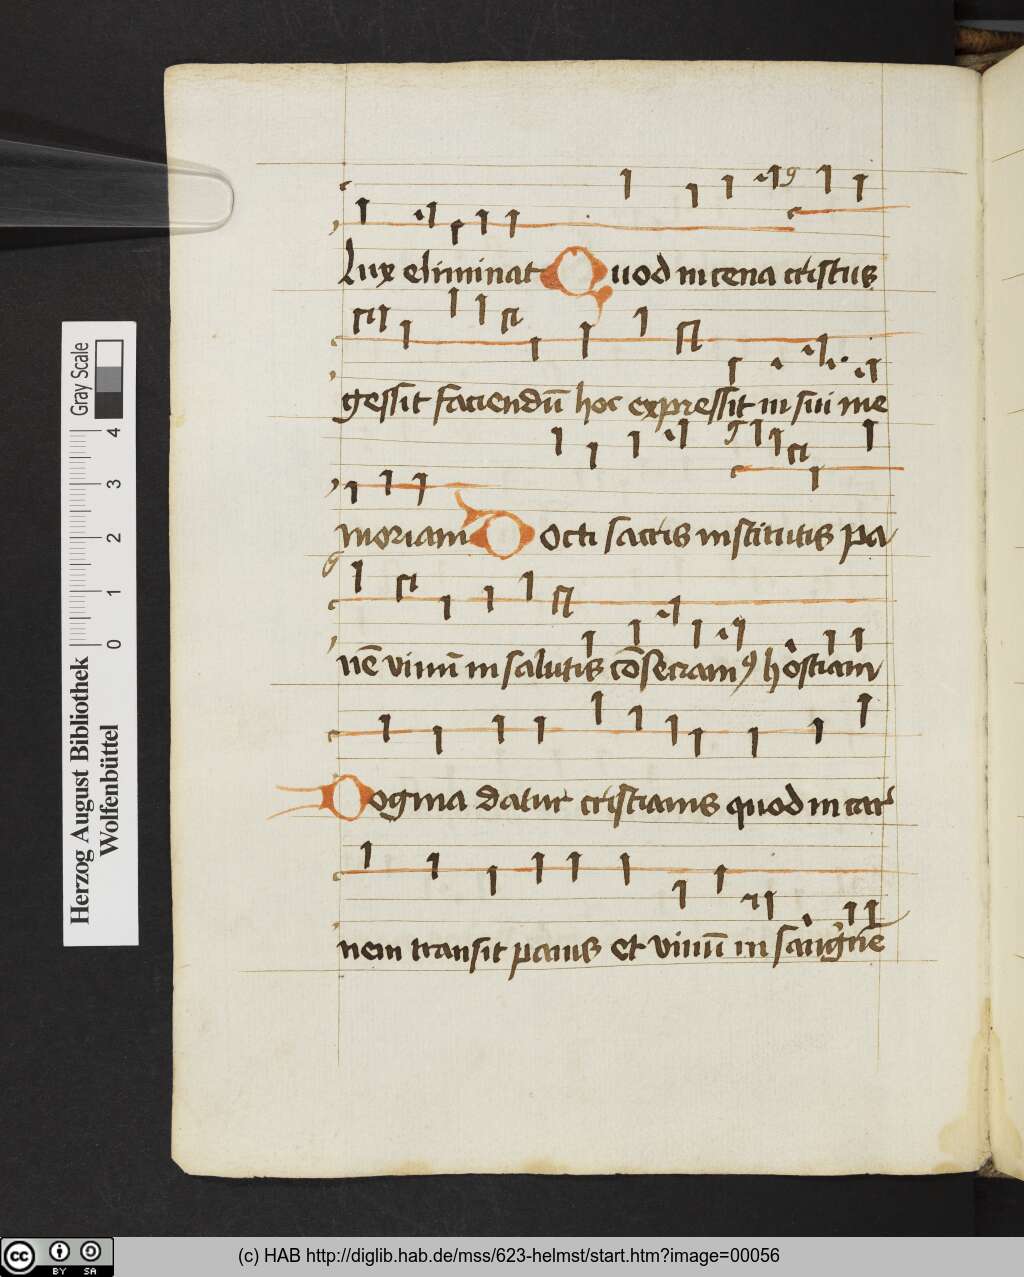 Lux eliminat Quod in cena cristus
gessit faciendū hoc expressit in sui me
moriam Docti sacris institutis pa
nē vinū in salutis cōsecram9 hostiam
Dogma datur cristianis quod in car
nem transit panis et vinū in sanguinē
Herzog August Bibliothek
Wolfenbüttel
Gray Scale
0 1 2 3 4
cc BY SA
(c) HAB http://diglib.hab.de/mss/623-helmst/start.htm?image=00056